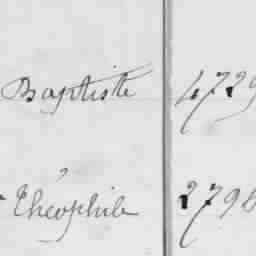 Baptiste 4729
Théophile 2798